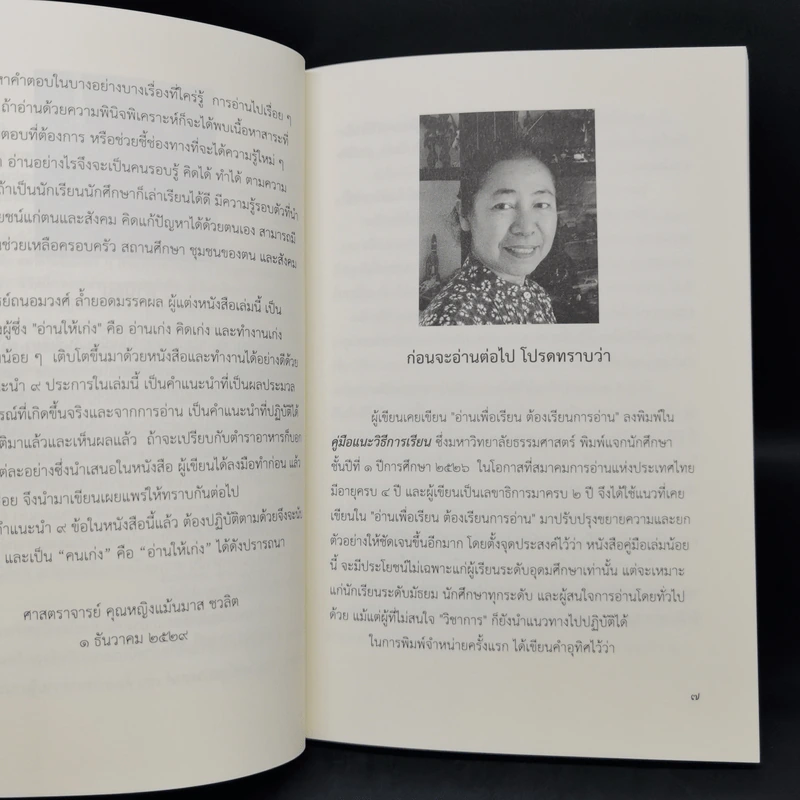 หาคำตอบในบางอย่างบางเรื่องที่ใคร่รู้ การอ่านไปเรื่อย ๆ
ถ้าอ่านด้วยความพินิจพิเคราะห์ก็จะได้พบเนื้อหาสาระที่
ตอบที่ต้องการ หรือช่วยชี้ช่องทางที่จะได้ความรู้ใหม่ ๆ
อ่านอย่างไรจึงจะเป็นคนรอบรู้ คิดได้ ทำได้ ตามความ
ถ้าเป็นนักเรียนนักศึกษาก็เล่าเรียนได้ดี มีความรู้รอบตัวที่นำ
ยชน์แก่ตนและสังคม คิดแก้ปัญหาได้ด้วยตนเอง สามารถมี
ช่วยเหลือครอบครัว สถานศึกษา ชุมชนของตน และสังคม
ย์ถนอมวงศ์ ล้ำยอดมรรคผล ผู้แต่งหนังสือเล่มนี้ เป็น
ผู้ซึ่ง "อ่านให้เก่ง" คือ อ่านเก่ง คิดเก่ง และทำงานเก่ง
น้อย ๆ เติบโตขึ้นมาด้วยหนังสือและทำงานได้อย่างดีด้วย
ะนำ ๙ ประการในเล่มนี้ เป็นคำแนะนำที่เป็นผลประมวล
รณ์ที่เกิดขึ้นจริงและจากการอ่าน เป็นคำแนะนำที่ปฏิบัติได้
ติมาแล้วและเห็นผลแล้ว ถ้าจะเปรียบกับตำราอาหารก็บอก
ต่ละอย่างซึ่งนำเสนอในหนังสือ ผู้เขียนได้ลงมือทำก่อน แล้ว
่อย จึงนำมาเขียนเผยแพร่ให้ทราบกันต่อไป
คำแนะนำ ๙ ข้อในหนังสือนี้แล้ว ต้องปฏิบัติตามด้วยจึงจะนำ
และเป็น “คนเก่ง” คือ “อ่านให้เก่ง” ได้ดังปรารถนา
ศาสตราจารย์ คุณหญิงแม้นมาส ชวลิต
๑ ธันวาคม ๒๕๒๙
ก่อนจะอ่านต่อไป โปรดทราบว่า
ผู้เขียนเคยเขียน "อ่านเพื่อเรียน ต้องเรียนการอ่าน" ลงพิมพ์ใน
คู่มือแนะวิธีการเรียน ซึ่งมหาวิทยาลัยธรรมศาสตร์ พิมพ์แจกนักศึกษา
ชั้นปีที่ ๑ ปีการศึกษา ๒๕๒๖ ในโอกาสที่สมาคมการอ่านแห่งประเทศไทย
มีอายุครบ ๔ ปี และผู้เขียนเป็นเลขาธิการมาครบ ๒ ปี จึงได้ใช้แนวที่เคย
เขียนใน "อ่านเพื่อเรียน ต้องเรียนการอ่าน" มาปรับปรุงขยายความและยก
ตัวอย่างให้ชัดเจนขึ้นอีกมาก โดยตั้งจุดประสงค์ไว้ว่า หนังสือคู่มือเล่มน้อย
นี้ จะมีประโยชน์ไม่เฉพาะแก่ผู้เรียนระดับอุดมศึกษาเท่านั้น แต่จะเหมาะ
แก่นักเรียนระดับมัธยม นักศึกษาทุกระดับ และผู้สนใจการอ่านโดยทั่วไป
ด้วย แม้แต่ผู้ที่ไม่สนใจ "วิชาการ" ก็ยังนำแนวทางไปปฏิบัติได้
ในการพิมพ์จำหน่ายครั้งแรก ได้เขียนคำอุทิศไว้ว่า
๗